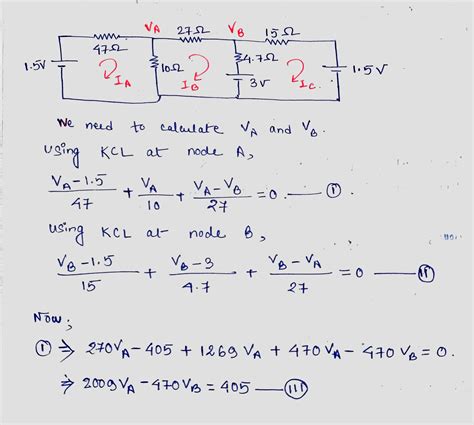 VA 27Ω VB 15Ω
47Ω
1.5V 10Ω 4.7Ω 1.5V
3V
IA IB IC
We need to calculate VA and VB.
using KCL at node A,
VA-1.5/47 + VA/10 + VA-VB/27 = 0. — (I)
using KCL at node B,
VB-1.5/15 + VB-3/4.7 + VB-VA/27 = 0 — (II)
Now,
(I) ⇒ 270VA - 405 + 1269 VA + 470 VA - 470 VB = 0.
⇒ 2009 VA - 470 VB = 405 — (III)